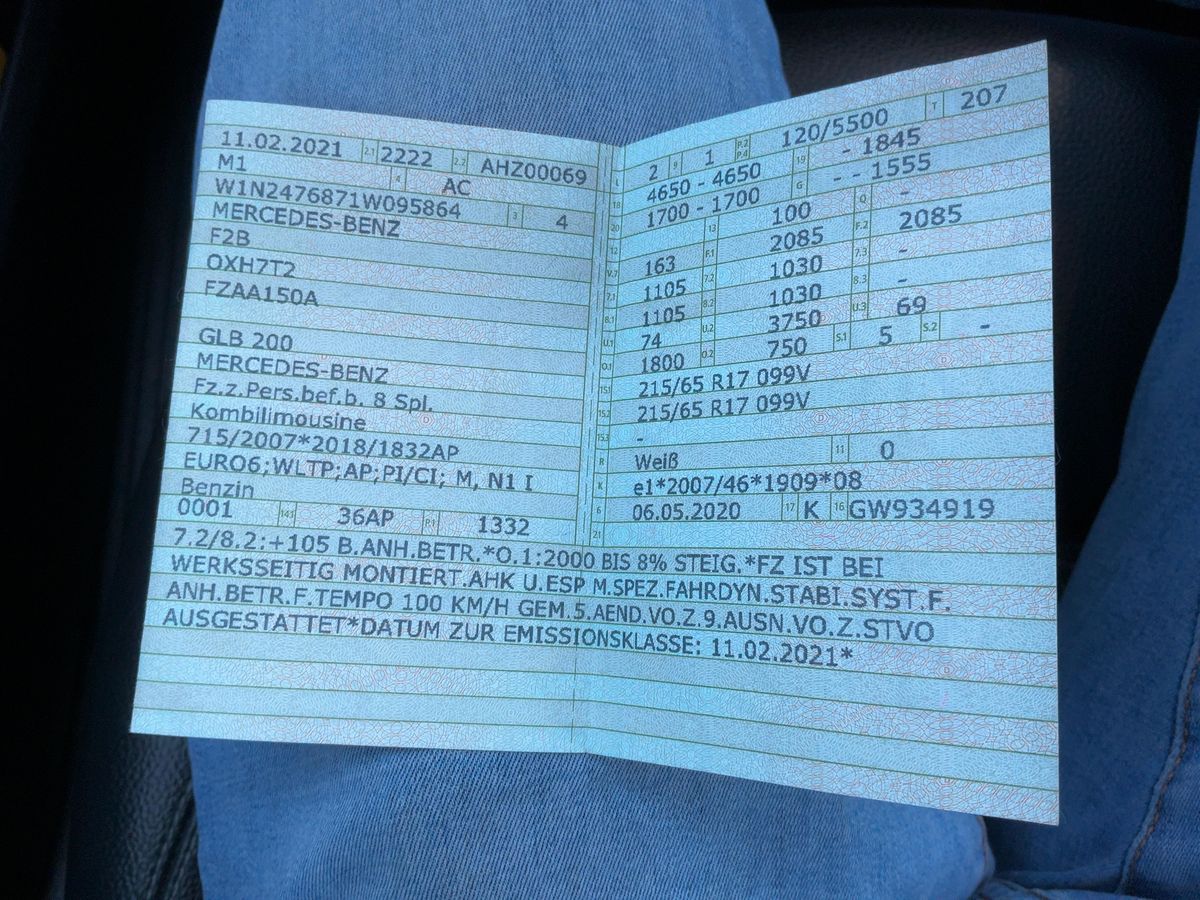 11.02.2021 2.1 2222 2.2 AHZ00069
M1 4 AC
W1N2476871W095864 3 4
MERCEDES-BENZ
F2B
OXH7T2
FZAA150A
GLB 200
MERCEDES-BENZ
Fz.z.Pers.bef.b. 8 Spl.
Kombilimousine
715/2007*2018/1832AP
EURO6;WLTP;AP;PI/CI; M, N1 I
Benzin
0001 14.1 36AP P.1 1332
L 2 9 1 P.2 P.4 120/5500 T 207
18 4650 - 4650 19 - 1845
20 1700 - 1700 G - - 1555
12 - 13 100 Q -
V.7 163 F.1 2085 F.2 2085
7.1 1105 7.2 1030 7.3 -
8.1 1105 8.2 1030 8.3 -
U.1 74 U.2 3750 U.3 69
O.1 1800 O.2 750 S.1 5 S.2 -
15.1 215/65 R17 099V
15.2 215/65 R17 099V
15.3 -
R Weiß 11 0
K e1*2007/46*1909*08
6 06.05.2020 17 K 16 GW934919
21
7.2/8.2:+105 B.ANH.BETR.*O.1:2000 BIS 8% STEIG.*FZ IST BEI
WERKSSEITIG MONTIERT.AHK U.ESP M.SPEZ.FAHRDYN.STABI.SYST.F.
ANH.BETR.F.TEMPO 100 KM/H GEM.5.AEND.VO.Z.9.AUSN.VO.Z.STVO
AUSGESTATTET*DATUM ZUR EMISSIONSKLASSE: 11.02.2021*